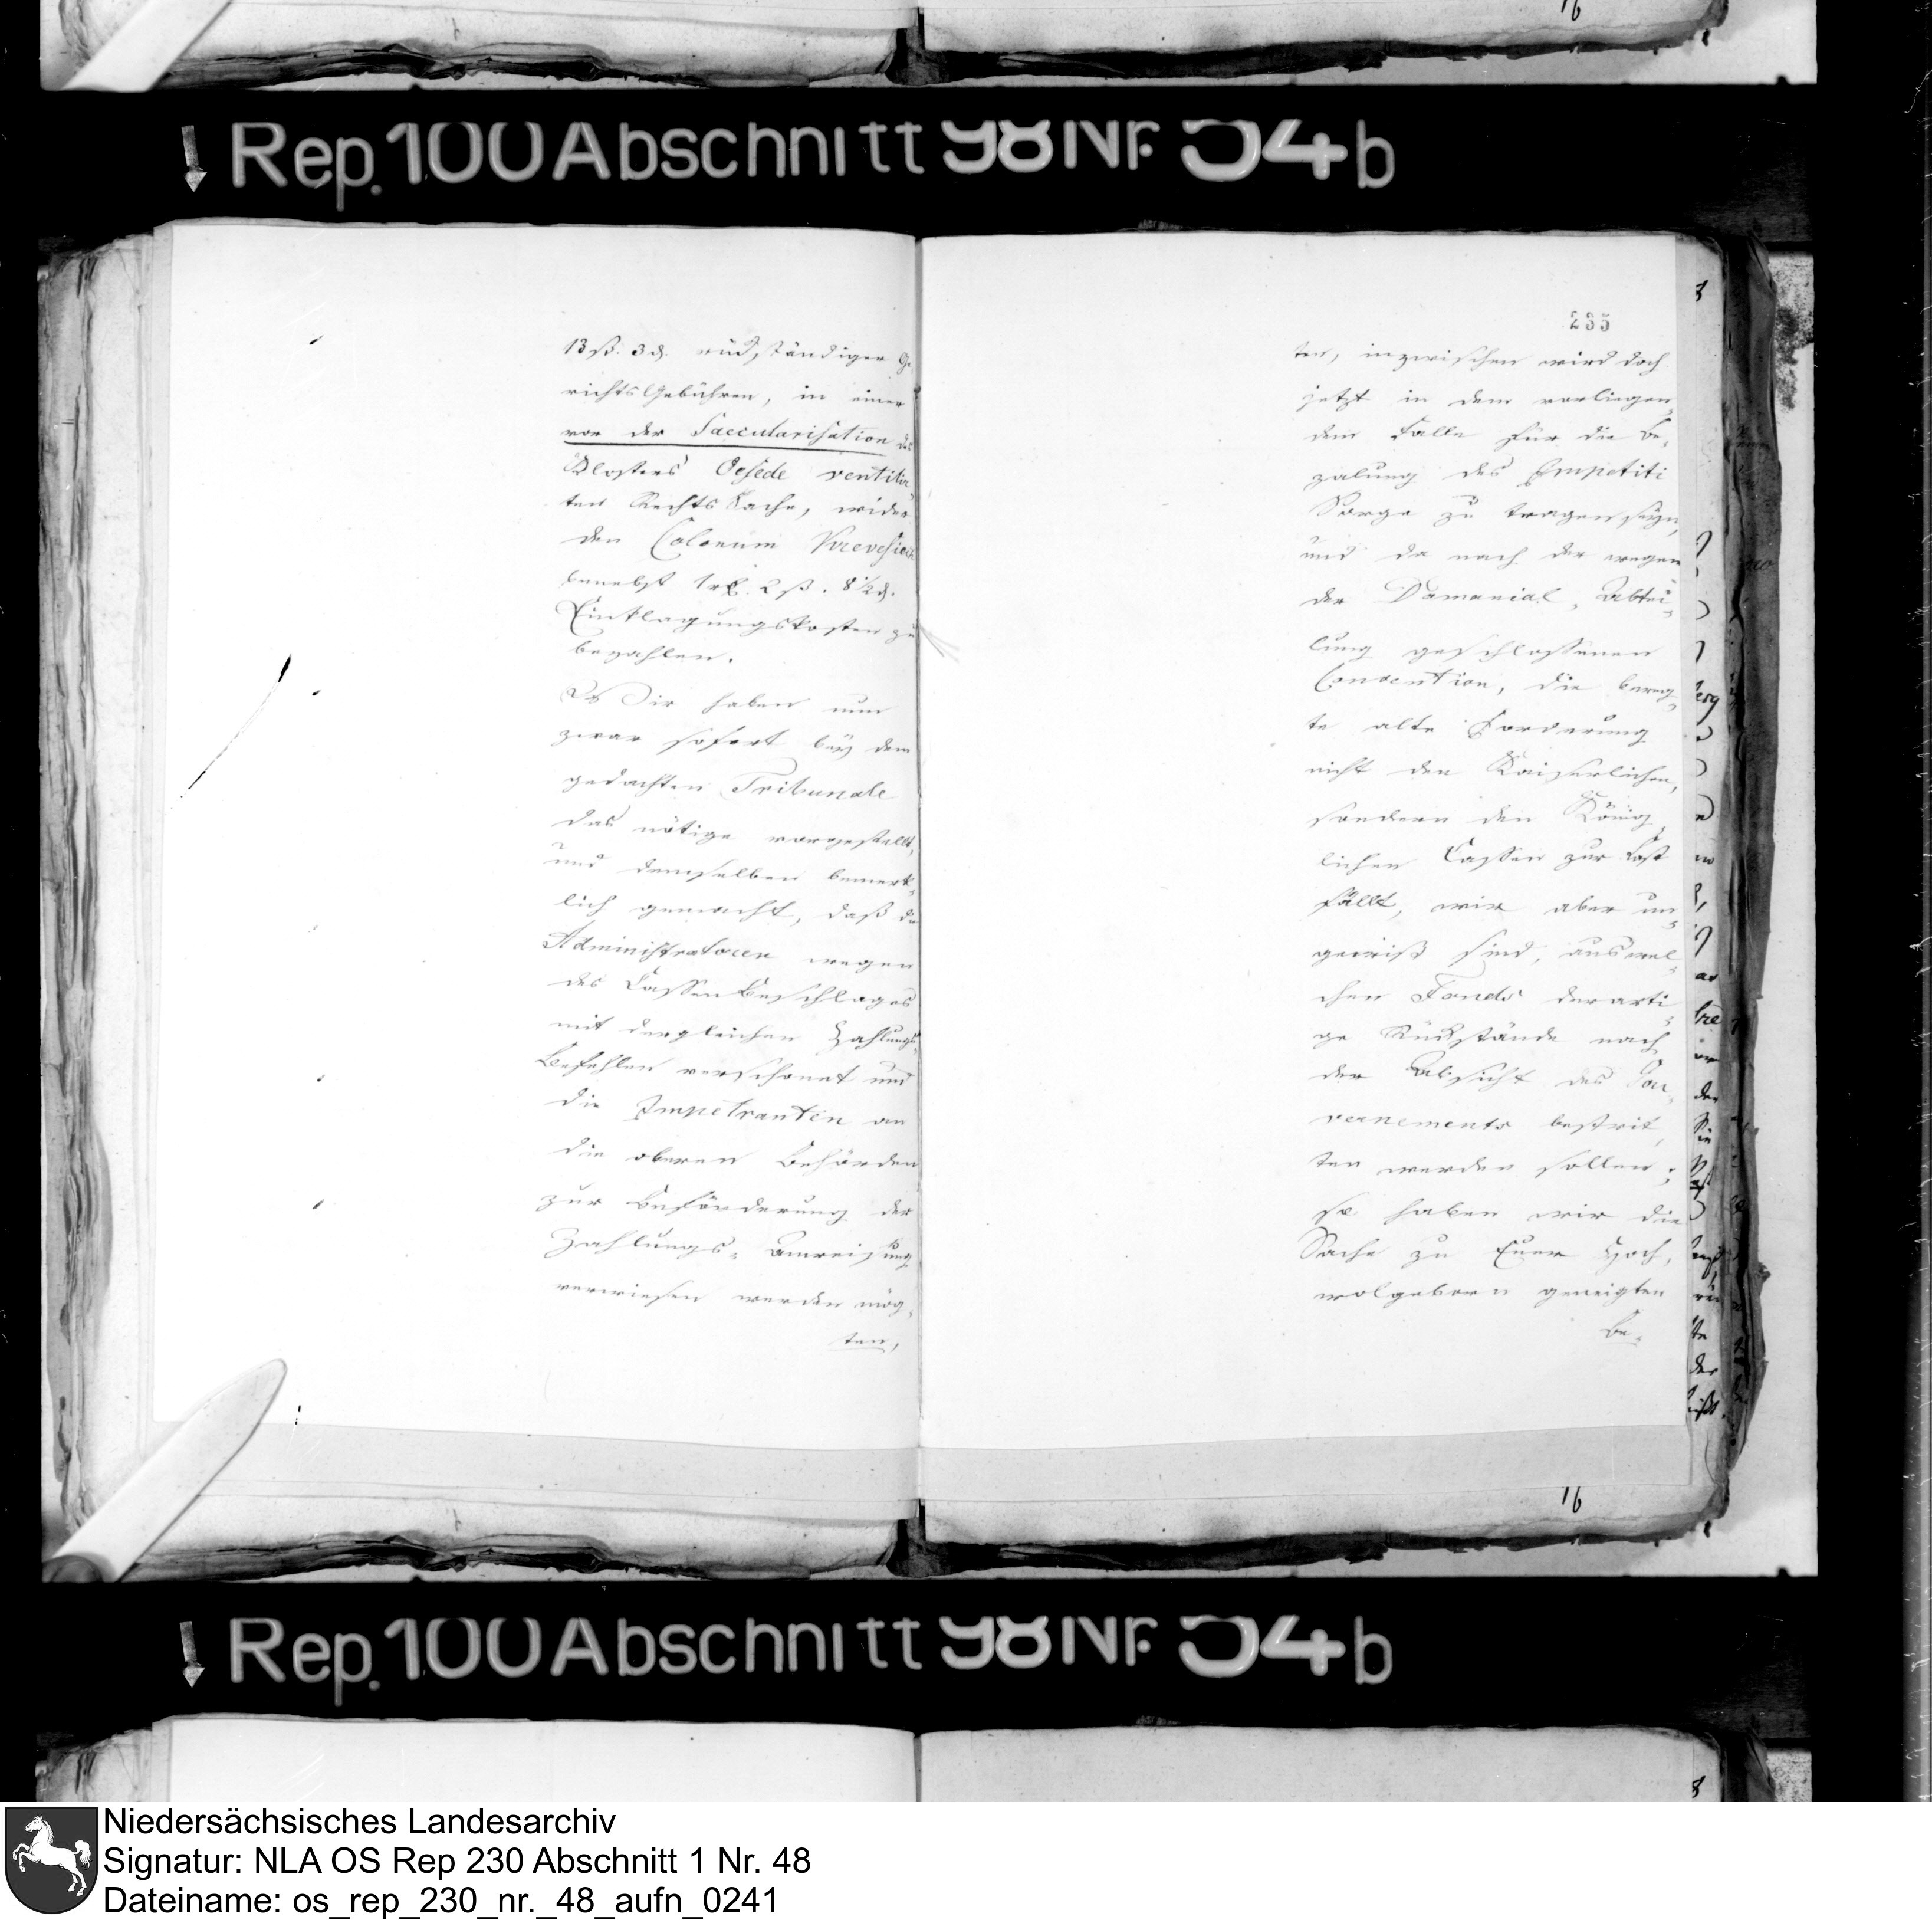 16
Rep. 100 Abschnitt 98 Nr. 54 b
13 ß. 3 d. rückständiger Ge-
richtsGebühren, in einer
vor der Saecularisation des
Klosters Oesede ventilir-
ten RechtsSache, wider
den Colonum
benebst 1 rt. 2 ß. 8½ d.
Einklagungskosten zu
bezahlen.
Wir haben nun
zwar sofort bey dem
gedachten Tribunale
das nötige vorgestellt,
und demselben bemerk-
lich gemacht, daß die
Administratoren wegen
des Cassenbeschlages
mit dergleichen Zahlungs-
Befehlen verschonet und
die Impetranten an
die oberen Behörden
zur Beförderung der
Zahlungs-Anweisung
verwiesen werden mög-
ten,
235
ten, inzwischen wird doch
jetzt in dem vorliegen-
dem Falle für die Be-
zalung des Impetiti
Sorge zu tragen seyn,
und da nach der wegen
der Domanial-Abtei-
lung geschlossenen
Convention, die bereg-
te alte Forderung
nicht den Kaiserlichen,
sondern den König-
lichen Cassen zur Last
fällt, wir aber un-
gewiß sind, aus wel-
chen Fonds derarti-
ge Rückstände nach
der Absicht des Gou-
vernements bestrit-
ten werden sollen;
so haben wir die
Sache zu Euer Hoch-
wolgeborn geneigten
Be-
16
Rep. 100 Abschnitt 98 Nr. 54 b
Niedersächsisches Landesarchiv
Signatur: NLA OS Rep 230 Abschnitt 1 Nr. 48
Dateiname: os_rep_230_nr._48_aufn_0241